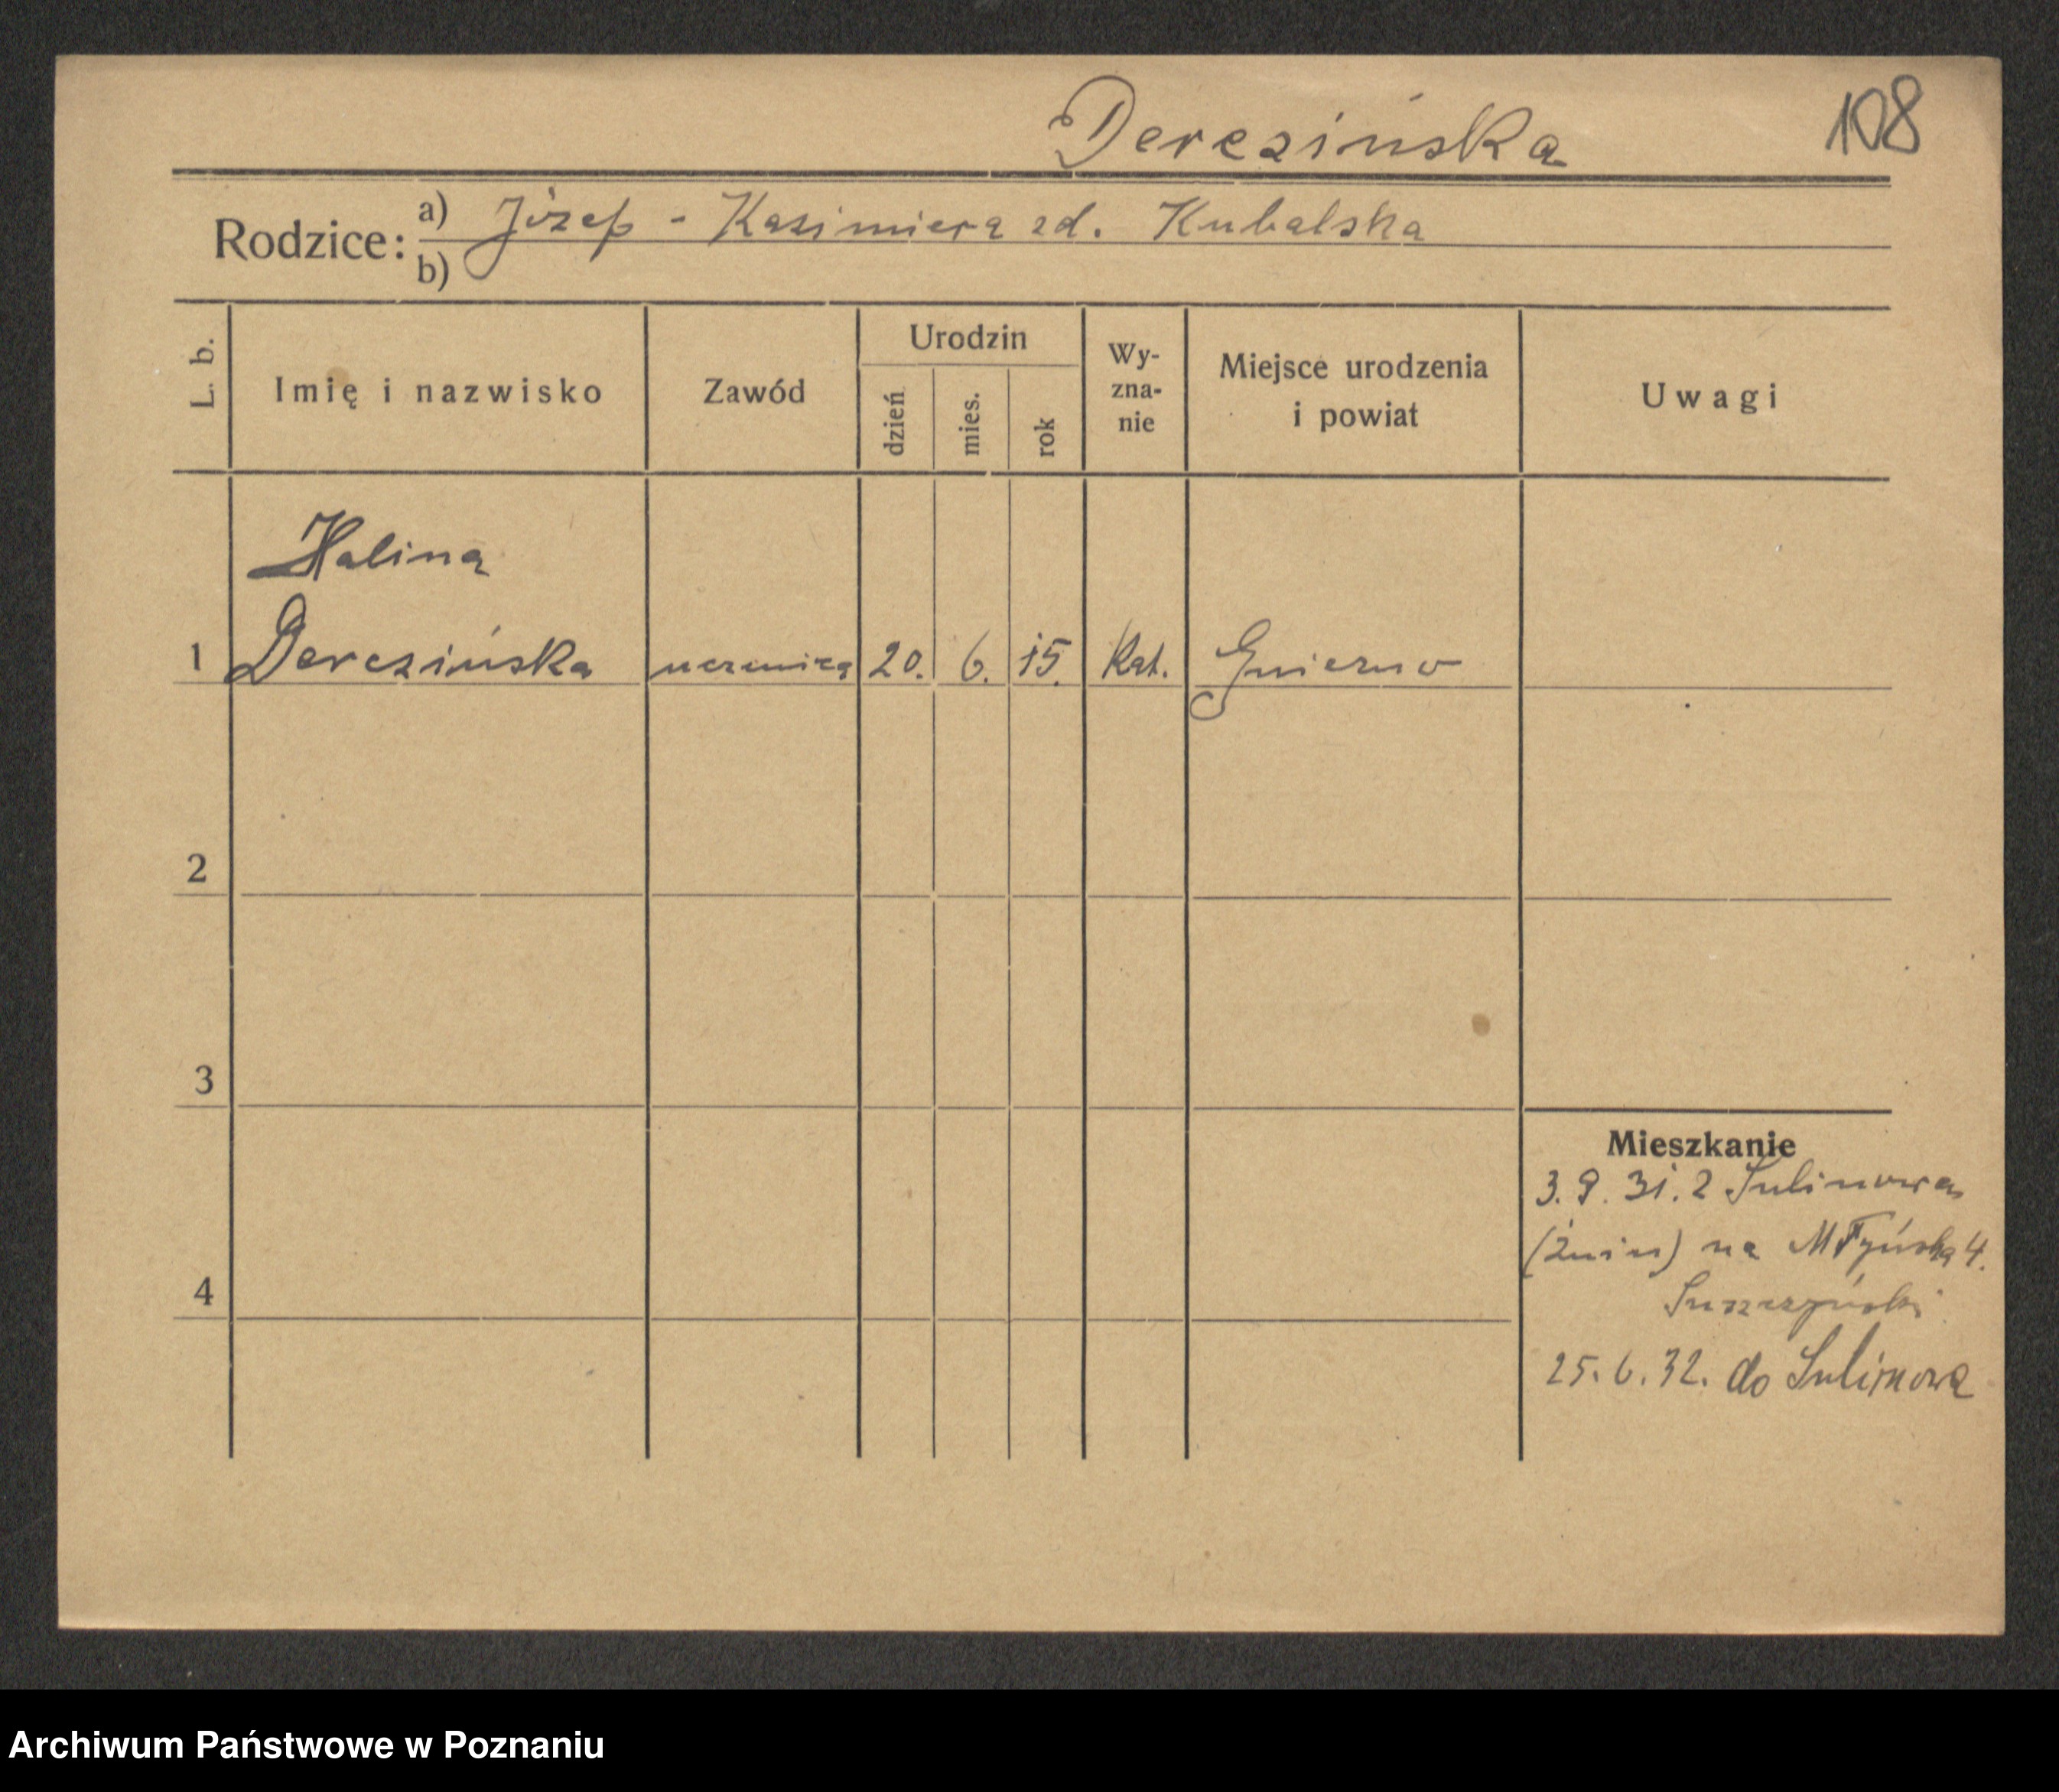 Derezińska
108
Rodzice:
a) Józef - Kazimiera zd. Kubalska
b)
L. b.
Imię i nazwisko
Zawód
Urodzin
dzień
mies.
rok
Wy-
zna-
nie
Miejsce urodzenia
i powiat
Uwagi
Halina
1 Derezińska uczenica 20. 6. 15. Kat. Gniezno
2
3
4
Mieszkanie
3. 9. 31. z Sulinowa
(Żnin) na Młyńską 4.
Suszczyński
25. 6. 32. do Sulinowa
Archiwum Państwowe w Poznaniu